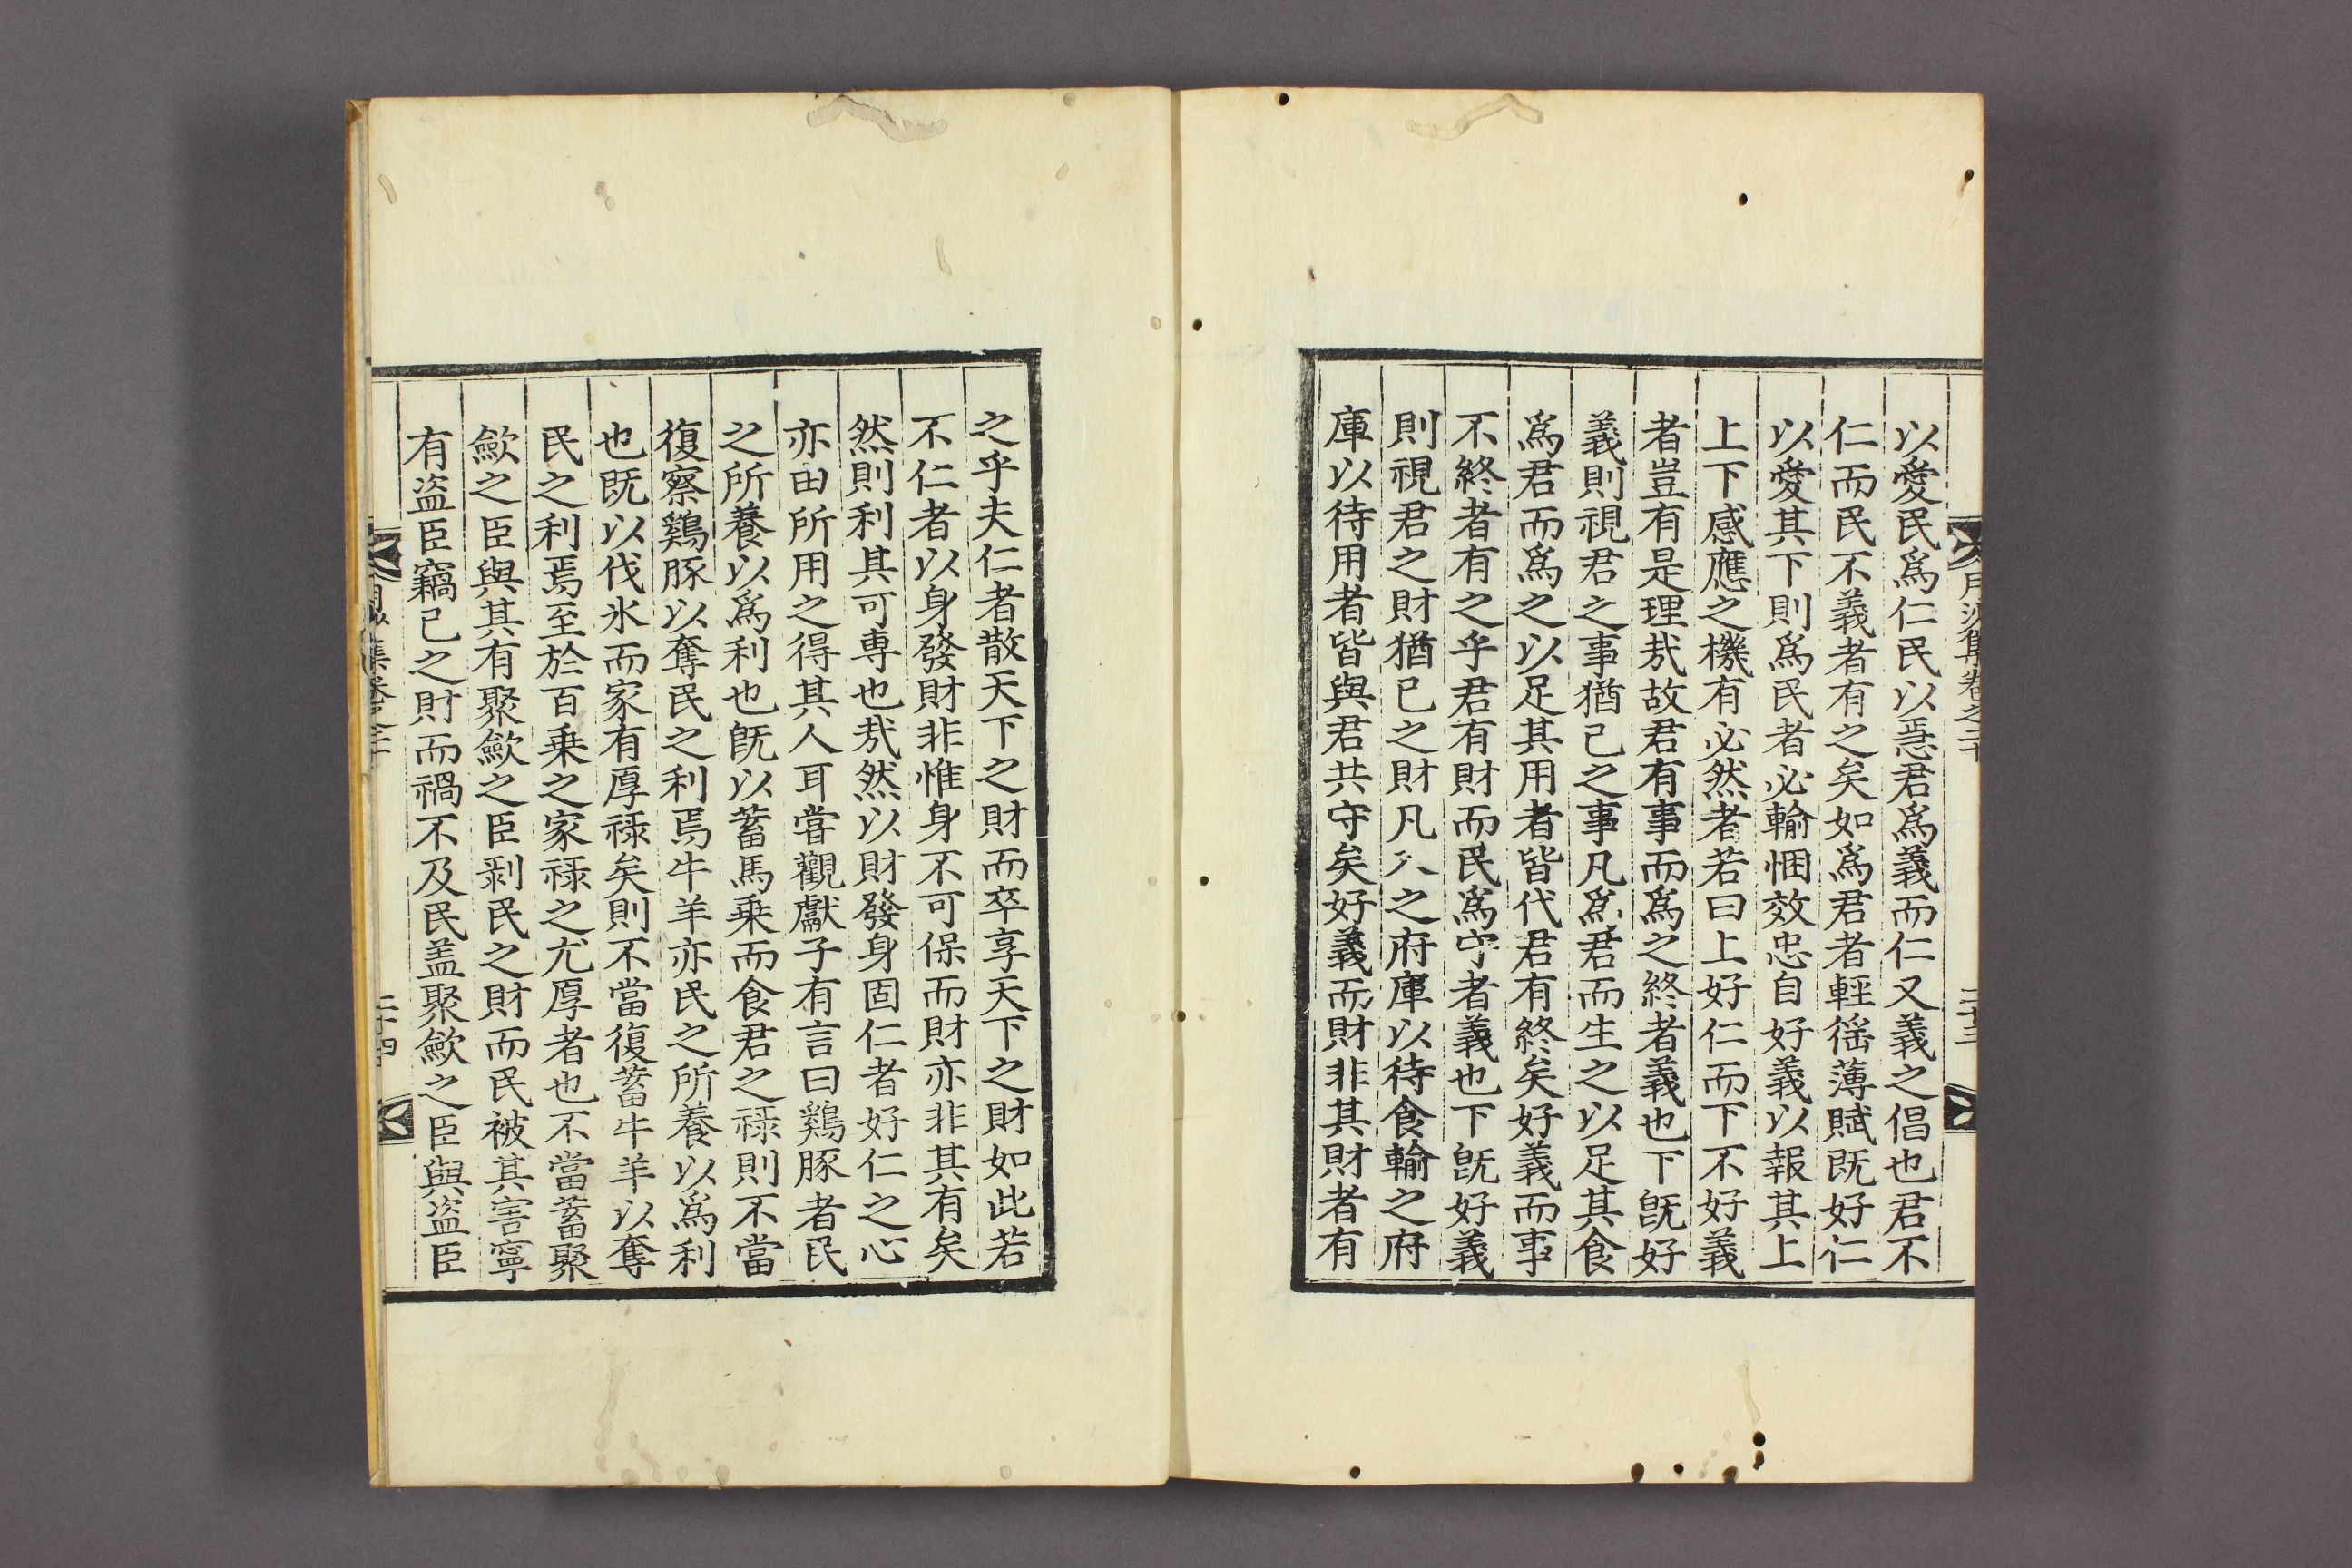 月沙集卷之二十
二十三
以愛民爲仁民以㤅君爲義而仁又義之倡也君不
仁而民不義者有之矣如爲君者輕徭薄賦既好仁
以愛其下則爲民者必輸悃效忠自好義以報其上
上下感應之機有必然者若曰上好仁而下不好義
者豈有是理㢤故君有事而爲之終者義也下旣好
義則視君之事猶己之事凡爲君而生之以足其食
爲君而爲之以足其用者皆代君有終矣好義而事
不終者有之乎君有財而民爲守者義也下旣好義
則視君之財猶已之財凡入之府庫以待食輸之府
庫以待用者皆與君共守矣好義而財非其財者有
之乎夫仁者散天下之財而卒享天下之財如此若
不仁者以身發財非惟身不可保而財亦非其有矣
然則利其可專也㢤然以財發身固仁者好仁之心
亦由所用之得其人耳嘗觀獻子有言曰鷄豚者民
之所養以爲利也旣以蓄馬乗而食君之祿則不當
復察鷄豚以奪民之利焉牛羊亦民之所養以爲利
也旣以伐氷而家有厚祿矣則不當復蓄牛羊以奪
民之利焉至於百乗之家祿之尤厚者也不當蓄聚
歛之臣與其有聚歛之臣剥民之財而民被其害寧
有盗臣竊已之財而禍不及民盖聚歛之臣與盗臣
月沙集卷之二十
二十四